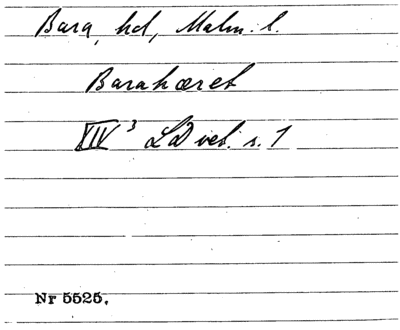 Bara, hd, Malm. l.
Barahæret
XIV³ LDvet. s. 1
Nr 5525.